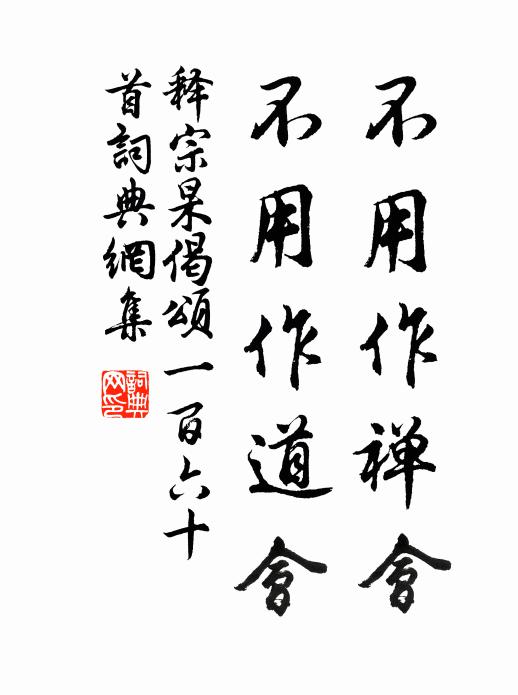 不用作禅會
不用作道會
释宗杲偈頌一百六十
首詞典網集
詞典网印